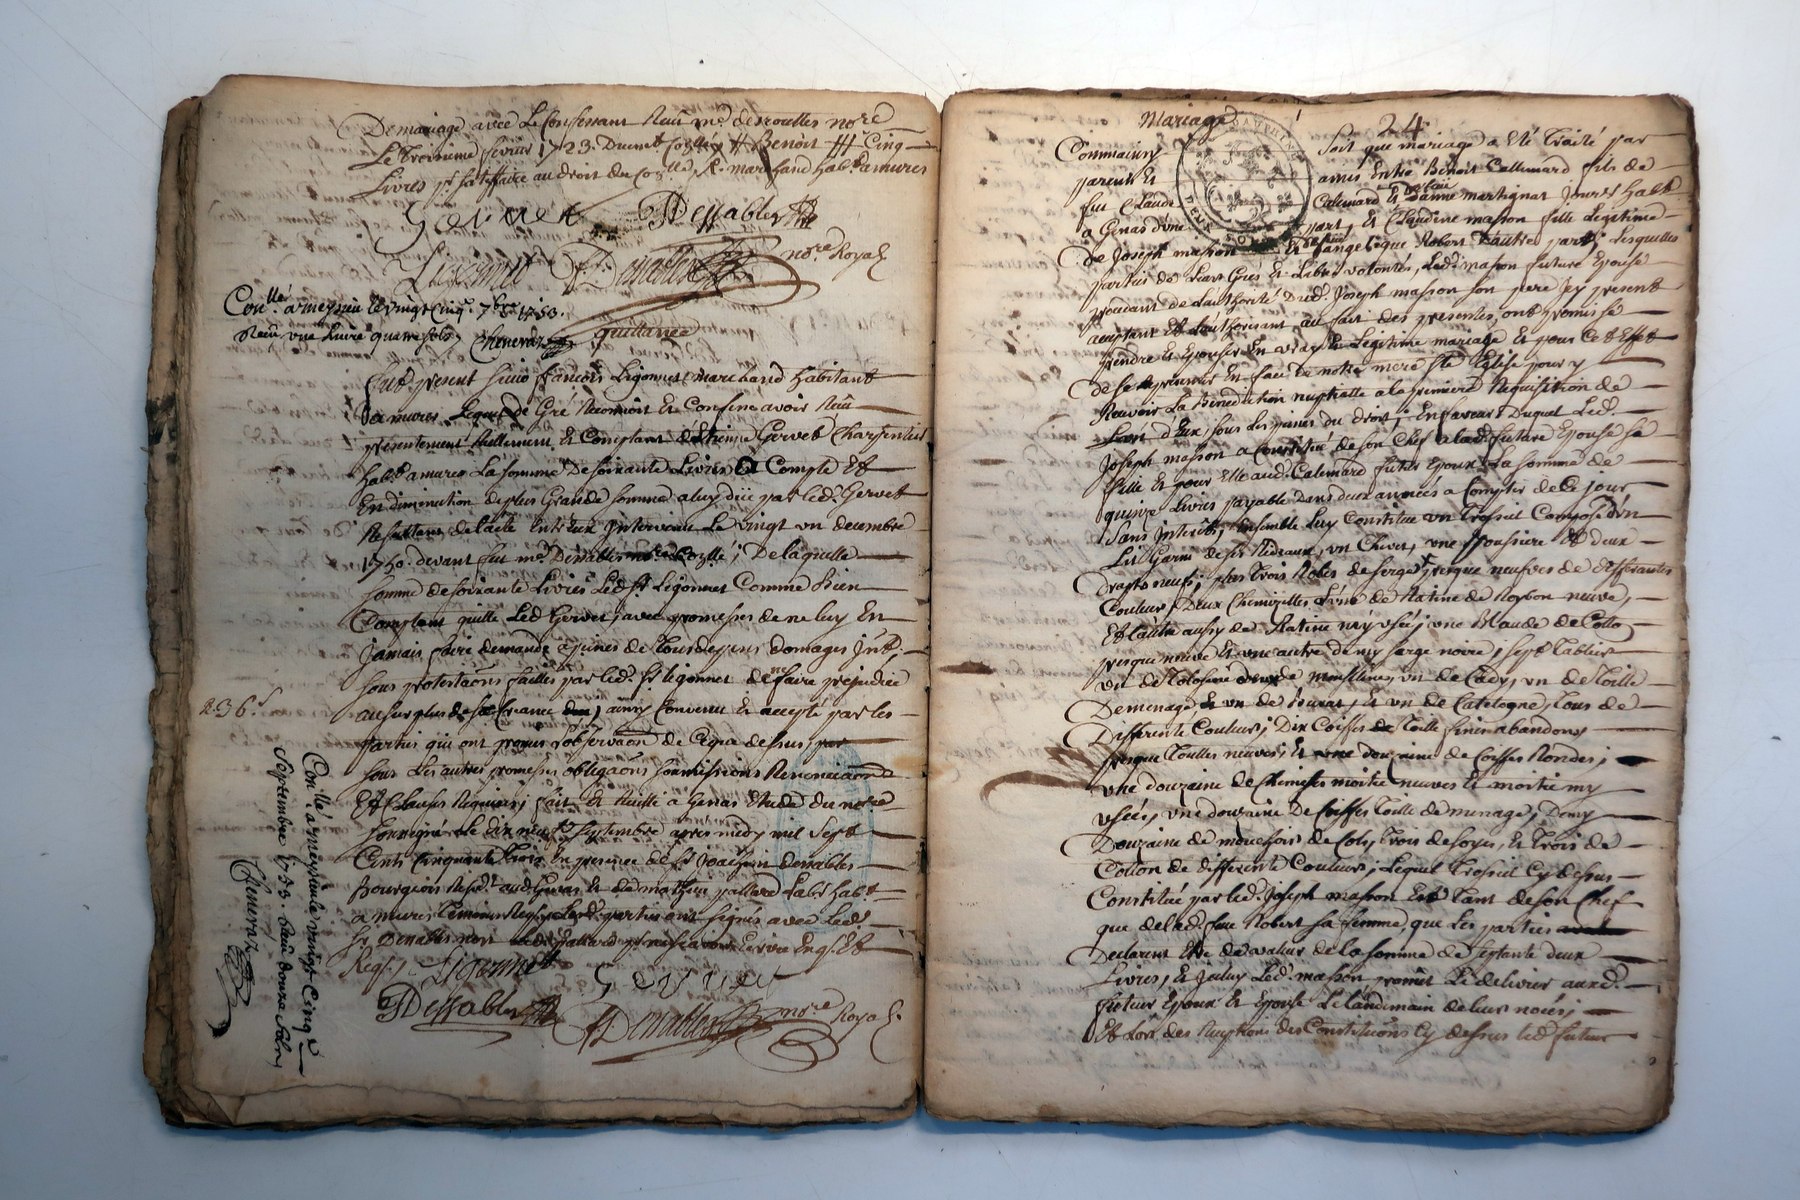 De mariage avec le Confessant Receu me. desroulles nore
Le troisieme fevrier 1723.
Livres pr. satisfaire au droit du marchand habt. a mures
Gervet GDessables
Ligonnet Dessables nore. Royal
Conllé. a meysieu le vingt Cinq. 7bre 1753.
Receu une Livre quatre sols, Chenevaz
quittance
fut present sieur francois Ligonnet marchand habitant
a mures Lequel de Gré Reconnoit et Confesse avoir Receu
presentement Reellement et Comptant d'Etienne Gervet Charpentier
habt. a mures La somme De soixante Livres a Compte Et
En diminution de plus Grande somme a luy düe par led. Gervet
Resultant de l'acte Entr'eux Intervenu Le vingt un decembre
1750. devant feu me. Dessables nore ; De laquelle
somme de soixante Livres Led. sr. Ligonnet Comme bien
Comptant quitte Led. Gervet, avec promesses de ne luy En
Jamais faire demande a peines de tous depens domages Intt.
sous protestaons faittes par led. sr. Ligonnet de ne faire prejudice
au surplus de sa Creance ainsy Convenu et accepté par les
parties qui ont promis l'observaon de Ce que dessus,
sous Les autres promesses obligaons soumissions Renonciaons
Et Clauses Requises; fait et Recitté a Genas Etude du nore
soussigné Le dix neuf septembre apres midy mil sept
Cents Cinquante trois En presence de sr. Joachim dessables
Bourgeois Resid.t aud. Genas et de mathieu pallard Labr. habt.
a mures temoins Requis Led. parties ont signés avec Led.
sr. Dessables non led. pallard pr. ne scavoir Ecrire Enqs. Et
Reqs. Ligonnet Gervet
GDessables Dessables nore. Royal.
236.
Conllé a meysieu le vingt Cinq
septembre 1753. Receu douze sols
Chenevaz
Mariage
24
DEUX SOLS
Comme ainsy soit que mariage a Eté traité par
parents Et amis Entre Benoit Callemard fils de
feu Claude Calemard et defunte Danne martignat Jour.r habt.
a Genas d'une part, et Claudine masson fille Legitime
de Joseph masson Et de feue angelique Robert d'autre part; Lesquelles
parties de Leurs Grés et Libres volontés, Led. masson future Epouse
procedant de l'authorité Dud. Joseph masson son pere Icy present
acceptant et L'authorisant au fait des presentes, ont promis se
prendre et Epouser En vray et Legitime mariage et pour Cet Effet
de se presenter En face De notre mere ste. Eglise pour y
Recevoir La Benediction nuptialle a la premiere Requisition de
L'un d'Eux, sous Les peines du droit; En faveur Duquel Led.
Joseph masson a Constitué de son Chef a lad. future Epouse sa
fille et pour Elle aud. Calemard futur Epoux La somme de
quinze Livres payable Dans deux années a Compter de Ce jour
sans Interets, Ensemble Luy Constitue un trossel Composé d'un
Lit Garni de ses Rideaux, un Chevet, une Et deux
draps neufs; plus trois Robes de serge presque neufves de differantes
Couleurs, Deux Chemisettes L'une de Ratine de Roybon neuve,
Et L'autre aussy de Ratine my usée; une de Cotto
presque neuve et une autre demy serge noire, sept tabliers
un de Cotosine de mousseline, un de Cadis, un de toille
De menage et un de et un de Catelogne tous de
Differente Couleurs; Dix Coiffes toille fine
presque toutes neuves; Et une douzaine de Coiffes Rondes;
une douzaine de Chemises moitié neuves et moitié my
usées, une douzaine De Coiffes toille de menage; Demy
Douzaine de mouchoirs de Col, trois de soyes, et trois de
Cotton de differente Couleurs; Lequel trossel Cy dessus
Constitué par led. Joseph masson Est tant de son Chef
que de led. feue Robert sa femme, que Les parties
Declarent Etre de valeur de la somme de septante deux
Livres, et Iceluy Led. masson promet Le delivrer auxd.
futeur Epoux et Epouse Le Landemain de leurs noces;
Et Lors des Receptions des Constitutions Cy dessus led. futeur